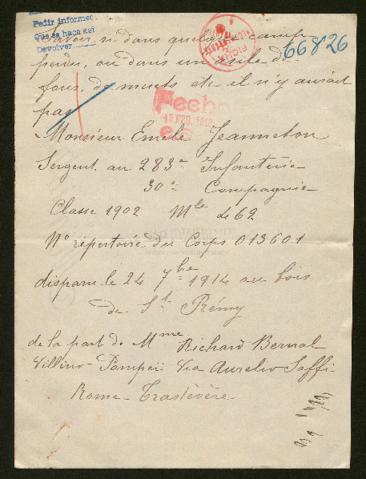 Pedir informes
Que se haga así
Devolver
66826
savoir si dans quelque camp
perdu, ou dans un asile de
fous, de muets etc il n'y aurait
pas
Fecha
Monsieur Emile Jeanneton
Sergent au 283e Infanterie
30e Compagnie
Classe 1902 Mle 462
No répertoire du Corps 013601
disparu le 24 7bre 1914 au bois
de St Rémy
de la part de Mme Richard Bernal
Villino Pompeii Via Aurelio Saffi
Rome-Trastévère